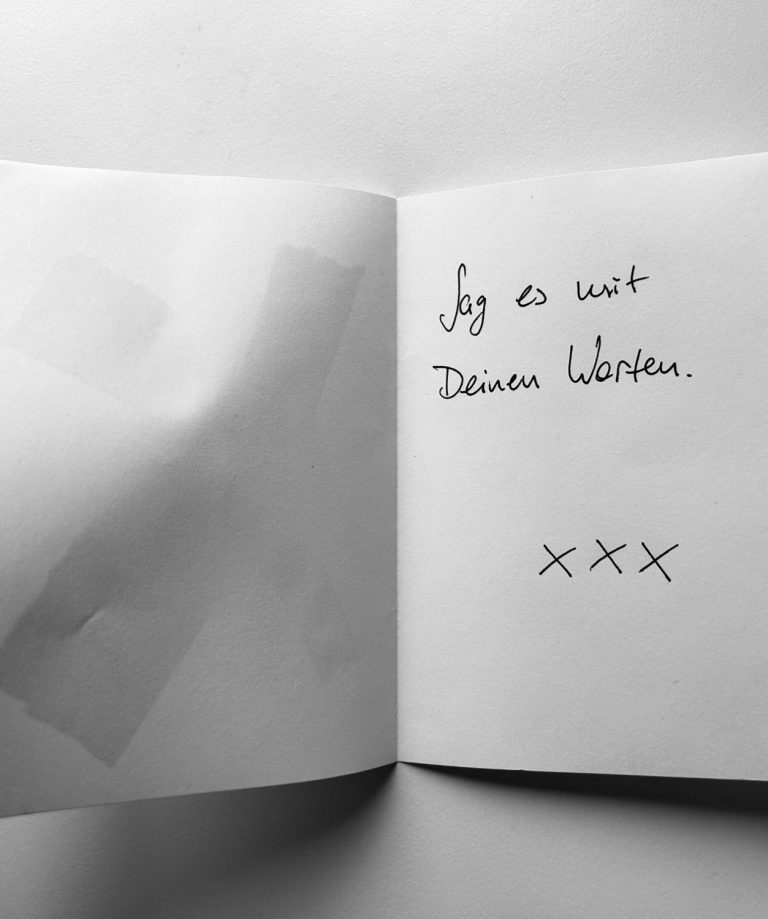 Sag es mit
Deinen Worten.
XXX